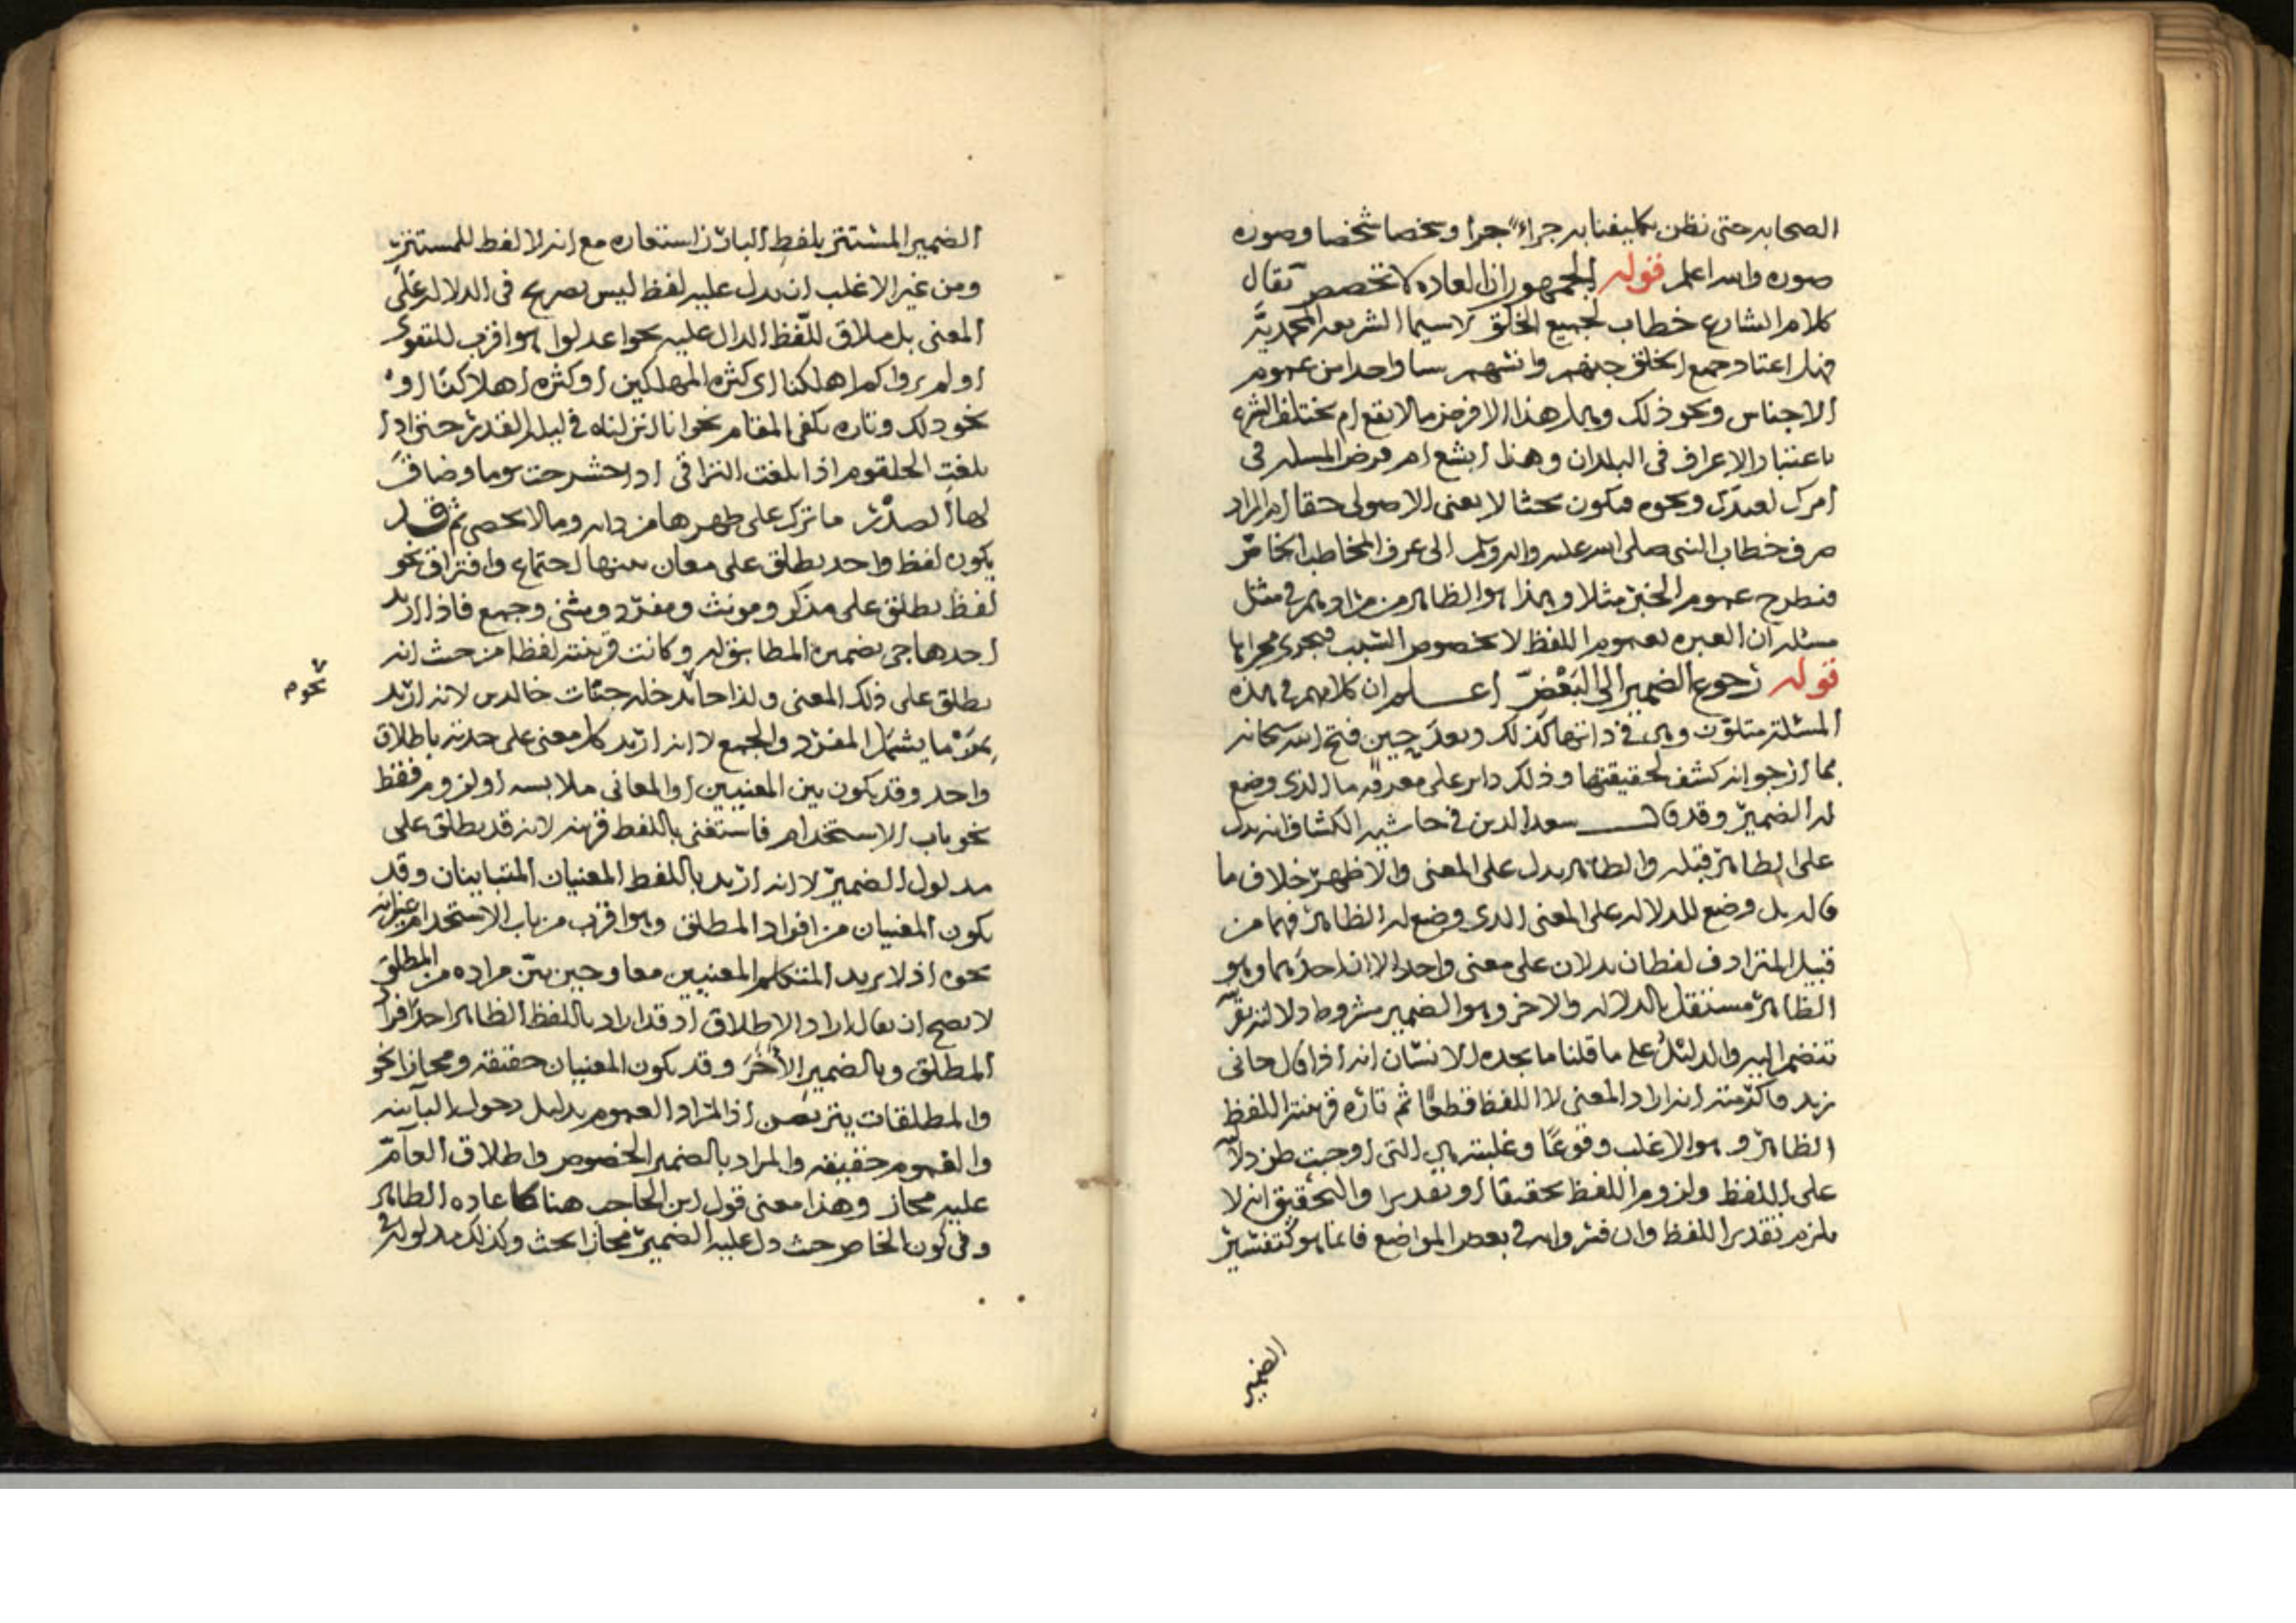 الصحابه حتى نظن تكليفنا به جراء جرا وشخصا شخصا وصوره
صوره والله اعلم قوله الجمهور ان العاده لا تخصص يقال
كلام الشارع خطاب لجميع الخلق لا سيما الشريعه المحمديه
فهل اعتاد جميع الخلق جنهم وانسهم شيا واحدا من عموم
الاجناس ونحو ذلك وهل هذا الا فرض ما لا يقع ام يختلف الشرع
باعتبار الاعراف في البلدان وهذا ابشع ام فرض المسله في
امرك لعبدك ونحوه فيكون بحثا لا يعنى الاصولى حقا ام المراد
صرف خطاب النبى صلى الله عليه واله وسلم الى عرف المخاطب الخاص
فنطرح عموم الخبر مثلا وهذا هو الظاهر من مرادهم في مثل
مسئله ان العبره لعموم اللفظ لا بخصوص السبب فيجرى مجراها
قوله رجوع الضمير الى البعض اعلم ان كلامهم في هذه
المسئلة متلون وهى في ذاتها كذلك وبعد حين فتح الله سبحانه
بما ارجو انه كشف لحقيقتها وذلك داير على معرفه ما الذى وضع
له الضمير وقد قال سعد الدين في حاشيه الكشاف انه يدل
على الظاهر قبله والظاهر يدل على المعنى والاظهر خلاف ما
قاله بل وضع للدلاله على المعنى الذى وضع له الظاهر فهما من
قبيل المترادف لفظان يدلان على معنى واحد الا ان احدهما وهو
الظاهر مستقل بالدلاله والاخر وهو الضمير مشروط دلالته بقر
تنضم اليه والدليل على ما قلنا ما يجده الانسان انه اذا قال جانى
زيد فاكرمته انه اراد المعنى لا اللفظ قطعا ثم تاره قرينته اللفظ
الظاهر وهو الاغلب وقوعا وغلبته هى التى اوجبت ظن دلا
على اللفظ ولزوم اللفظ تحقيقا او تقديرا والتحقيق انه لا
يلزم تقدير اللفظ وان فسروا به في بعض المواضع فانما هو كتفسير
الضمير
الضمير المستتر بلفظ البارز استعاره مع انه لا لفظ للمستتر
ومن غير الاغلب ان يدل عليه لفظ ليس بصريح في الدلاله على
المعنى بل ملاق للفظ الدال عليه نحو اعدلوا هو اقرب للتقوى
اولم يروا كم اهلكنا اى كثره المهلكين او كثره اهلاكنا او
نحو ذلك وتاره يكفى المقام نحو انا انزلناه في ليله القدر حتى اذا
بلغت الحلقوم اذا بلغت التراقى اذا حشرجت يوما وضاق
بها الصدر ما ترك على ظهرها من دابه وما لا يحصى ثم قد
يكون لفظ واحد يطلق على معان بينها اجتماع وافتراق نحو
لفظ يطلق على مذكر ومونث ومفرد ومثنى وجمع فاذا اريد
احدها جى بضميره المطابق له وكانت قرينته لفظا من حيث انه
يطلق على ذلك المعنى ولذا جا يدخله جنات خالدين لانه اريد
بمن ما يشمل المفرد والجمع لا انه اريد كل معنى على حدته باطلاق
واحد وقد يكون بين المعنيين او المعانى ملابسه او لزوم فقط
نحو باب الاستخدام فاستغنى باللفظ قرينه لانه قد يطلق على
مدلول الضمير لا انه اريد باللفظ المعنيان المتباينان وقد
يكون المعنيان من افراد المطلق وهو اقرب من باب الاستخدام غير انه
نحوه اذ لا يريد المتكلم المعنيين معا وحين بين مراده من المطلق
لا يصح ان يقال اراد الاطلاق اذ قد اراد باللفظ الظاهر احد افراد
المطلق وبالضمير الاخر وقد يكون المعنيان حقيقه ومجازا نحو
والمطلقات يتربصن اذ المراد العموم بدليل دخول الباينه
والعموم حقيقه والمراد بالضمير الخصوص واطلاق العام
عليه مجاز وهذا معنى قول ابن الحاجب هنا كاعاده الظاهر
وفى كون الخاص حيث دل عليه الضمير مجازا بحث وكذلك مدلوله
نحوم